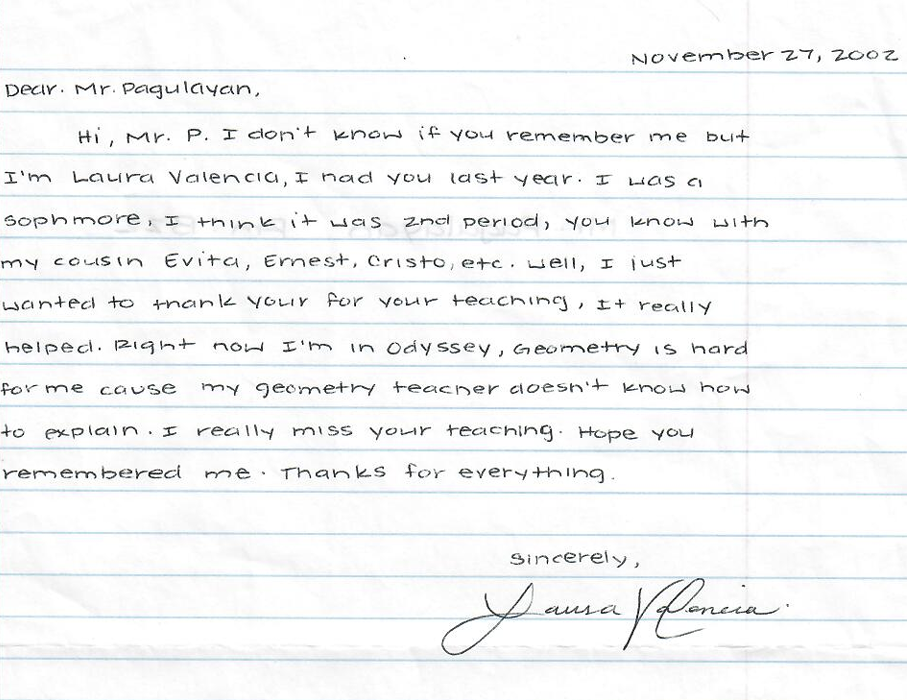 November 27, 2002
Dear. Mr. Pagulayan,
Hi, Mr. P. I don't know if you remember me but
I'm Laura Valencia, I had you last year. I was a
sophmore, I think it was 2nd period, you know with
my cousin Evita, Ernest, Cristo, etc. Well, I just
wanted to thank your for your teaching, It really
helped. Right now I'm in Odyssey, Geometry is hard
for me cause my geometry teacher doesn't know how
to explain. I really miss your teaching. Hope you
remembered me. Thanks for everything.
Sincerely,
Laura Valencia